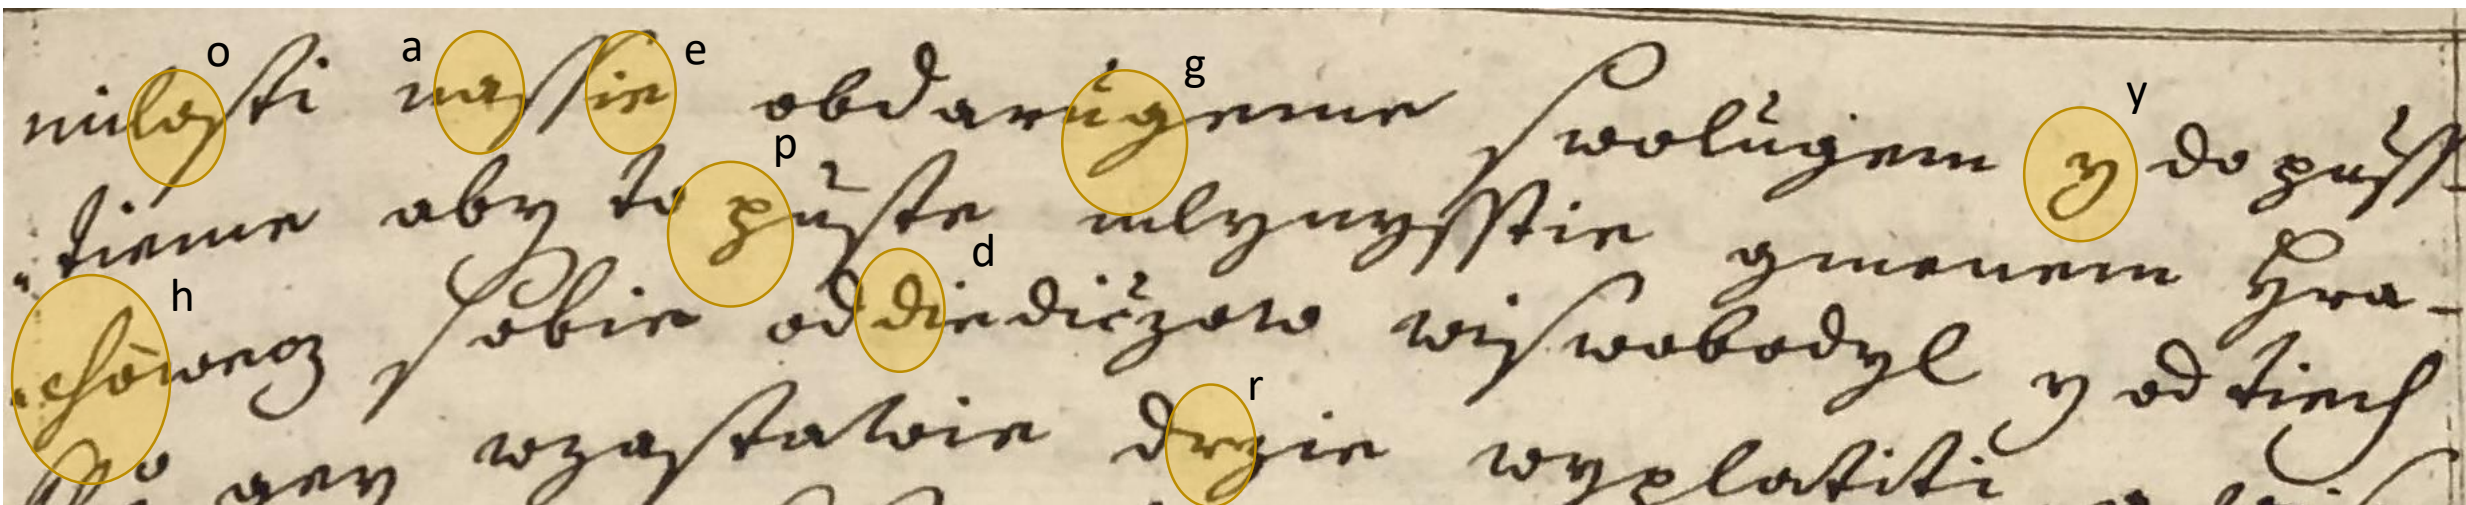 o a e g y p d h r
milosti nassie obdarugeme swolugem y dopuss-
tieme aby to puste mlynysstie gmenem Hra-
chowecz sobie od diediczow wiswobodyl y od tiech
gey wzastawie drzie wyplatiti